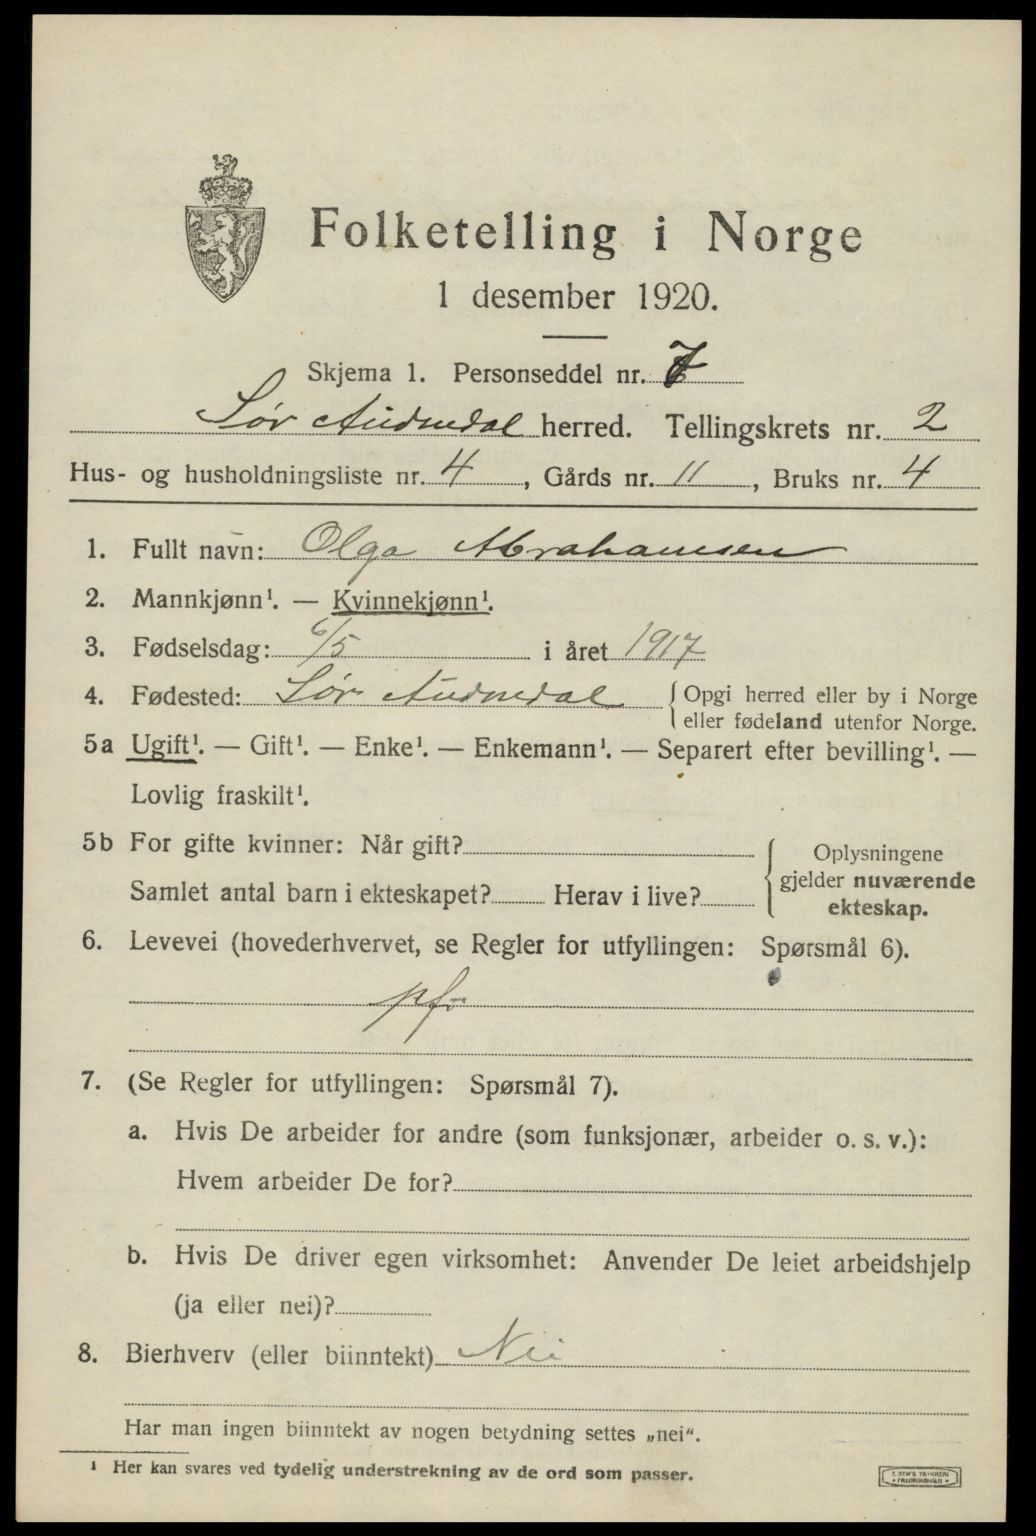 Folketelling i Norge
1 desember 1920.
Skjema 1. Personseddel nr. 7
Sør Audnedal herred. Tellingskrets nr. 2
Hus- og husholdningsliste nr. 4, Gårds nr. 11, Bruks nr. 4
1. Fullt navn: Olga Abrahamsen
2. Mannkjønn¹. — Kvinnekjønn¹.
3. Fødselsdag: 6/5 i året 1917
4. Fødested: Sør Audnedal { Opgi herred eller by i Norge
eller fødeland utenfor Norge.
5a Ugift¹. — Gift¹. — Enke¹. — Enkemann¹. — Separert efter bevilling¹. —
Lovlig fraskilt¹.
5b For gifte kvinner: Når gift?
Samlet antal barn i ekteskapet? Herav i live?
Oplysningene
gjelder nuværende
ekteskap.
6. Levevei (hovederhvervet, se Regler for utfyllingen: Spørsmål 6).
pfr
7. (Se Regler for utfyllingen: Spørsmål 7).
a. Hvis De arbeider for andre (som funksjonær, arbeider o. s. v.):
Hvem arbeider De for?
b. Hvis De driver egen virksomhet: Anvender De leiet arbeidshjelp
(ja eller nei)?
8. Bierhverv (eller biinntekt) Nei
Har man ingen biinntekt av nogen betydning settes „nei“.
¹ Her kan svares ved tydelig understrekning av de ord som passer.
E. SEM'S TRYKKERI
FREDRIKSHALD